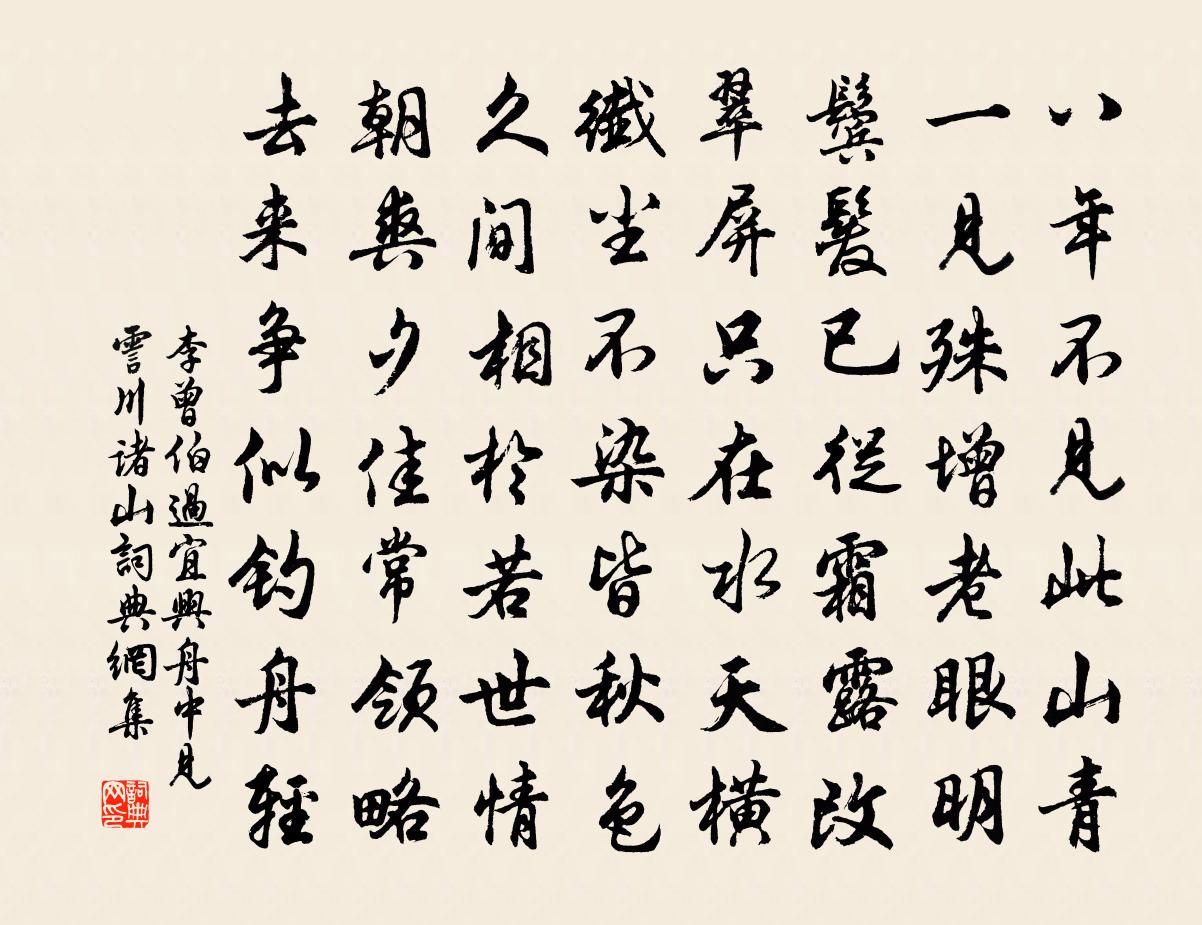 八年不見此山青
一見殊增老眼明
鬢髮已從霜露改
翠屏只在水天橫
纖尘不染皆秋色
久間相於若世情
朝爽夕佳常領略
去来爭似釣舟輕
李曾伯過宜興舟中見
霅川诸山詞典網集
詞典
网印